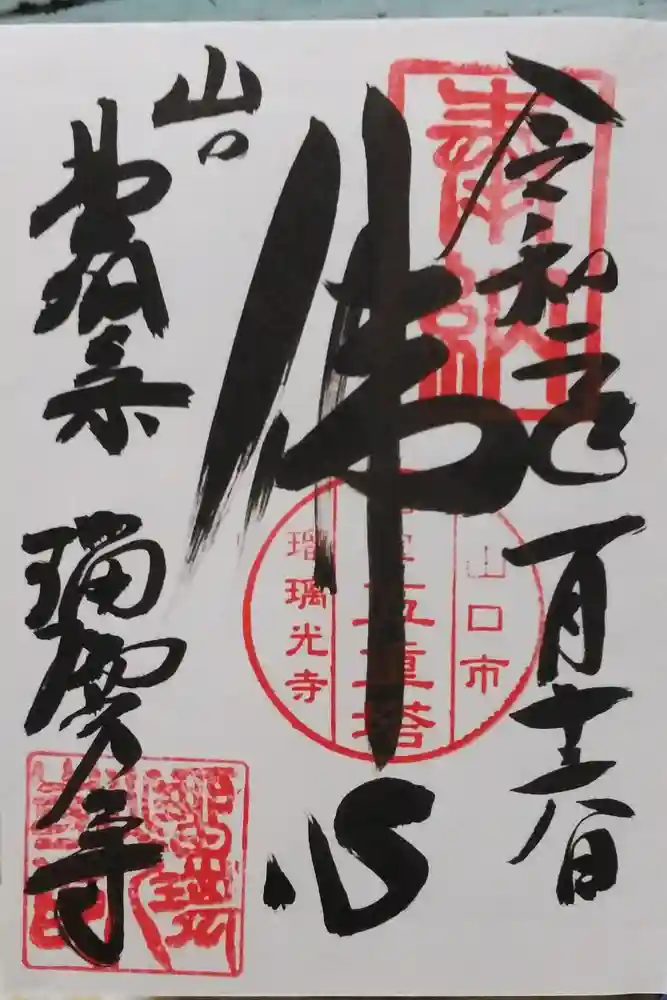 奉納
令和二年
一月十六日
佛心
山口市
国宝五重塔
瑠璃光寺
山口
曹洞宗 瑠璃光寺